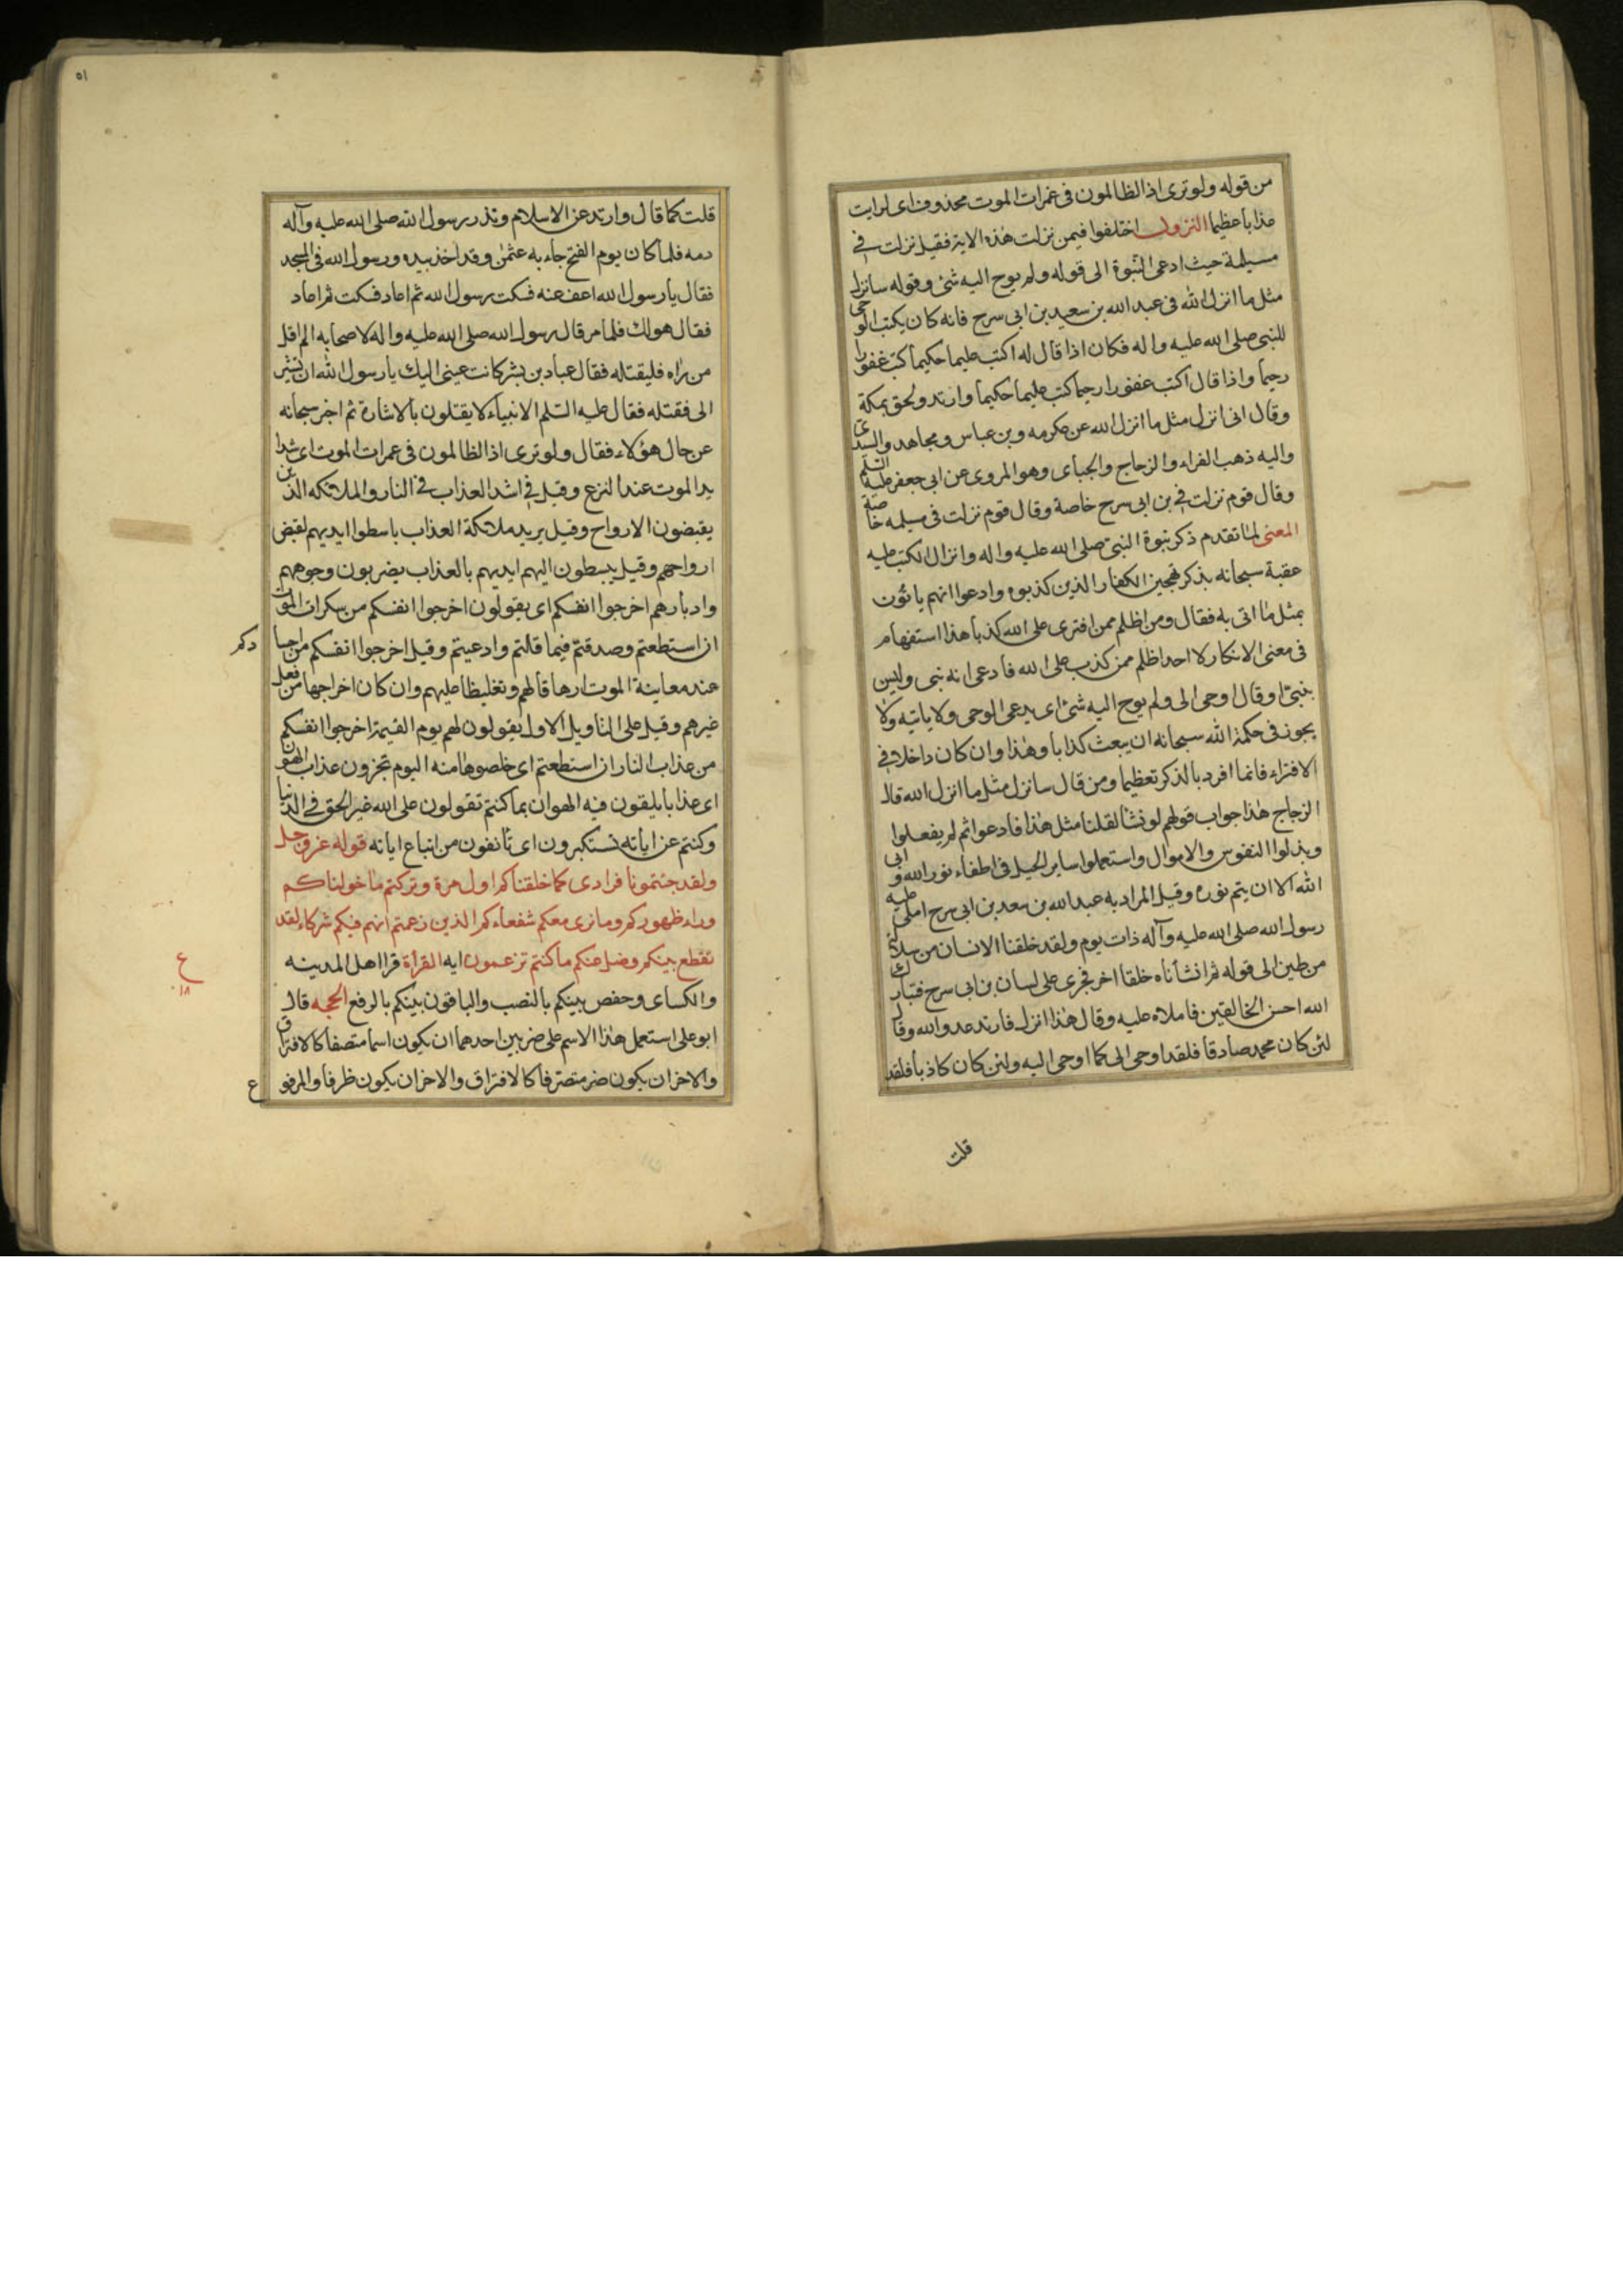 من قوله ولو ترى اذ الظالمون فى غمرات الموت محذوف اى لرايت
عذابا عظيما النزول اختلفوا فيمن نزلت هذه الاية فقيل نزلت فى
مسيلمة حيث ادعى النبوة الى قوله ولم يوح اليه شئ وقوله سانزل
مثل ما انزل الله فى عبد الله بن سعيد بن ابى سرح فانه كان يكتب الوحى
للنبى صلى الله عليه واله فكان اذا قال له اكتب عليما حكيما كتب غفورا
رحيما واذا قال اكتب غفورا رحيما كتب عليما حكيما وارتد ولحق بمكة
وقال انى انزل مثل ما انزل الله عن عكرمه وبن عباس ومجاهد والسدى
واليه ذهب الفراء والزجاج والجباى وهو المروى عن ابى جعفر عليه السلم
وقال قوم نزلت فى بن ابى سرح خاصة وقال قوم نزلت فى مسيلمه خاصة
المعنى لما تقدم ذكر نبوة النبى صلى الله عليه واله وانزال الكتب عليه
عقبة سبحانه بذكر تهجين الكفار الذين كذبوه وادعوا انهم ياتون
بمثل ما اتى به فقال ومن اظلم ممن افترى على الله كذبا هذا استفهام
فى معنى الانكار لا احد اظلم ممن كذب على الله فادعى انه نبى وليس
بنبى او قال اوحى الى ولم يوح اليه شئ اى يدعى الوحى ولا ياتيه ولا
يجوز فى حكمة الله سبحانه ان يبعث كذابا وهذا وان كان داخلا فى
الافتراء فانما افرد بالذكر تعظيما ومن قال سانزل مثل ما انزل الله قال
الزجاج هذا جواب قولهم لو نشا لقلنا مثل هذا فادعوا ثم لم يفعلوا
وبذلوا النفوس والاموال واستعملوا ساير الحيل فى اطفاء نور الله وابى
الله الا ان يتم نوره وقيل المراد به عبد الله بن سعد بن ابى سرح املى عليه
رسول الله صلى الله عليه وآله ذات يوم ولقد خلقنا الانسان من سلالة
من طين الى قوله ثم انشأناه خلقا اخر فجرى على لسان بن ابى سرح فتبارك
الله احسن الخالقين فاملاه عليه وقال هذا انزل فارتد عدو الله وقال
لئن كان محمد صادقا فلقد اوحى الى كما اوحى اليه ولئن كان كاذبا فلقد
قلت
٥١
قلت كما قال وارتد عن الاسلام ونذر رسول الله صلى الله عليه وآله
دمه فلما كان يوم الفتح جاء به عثمن وقد اخذ بيده ورسول الله فى المسجد
فقال يا رسول الله اعف عنه فسكت رسول الله ثم اعاد فسكت ثم اعاد
فقال هو لك فلما مر قال رسول الله صلى الله عليه واله لاصحابه الم اقل
من راه فليقتله فقال عباد بن بشر كانت عينى اليك يا رسول الله ان تشير
الى فقتله فقال عليه السلم الانبياء لا يقتلون بالاشارة ثم اخبر سبحانه
عن حال هؤلاء فقال ولو ترى اذ الظالمون فى غمرات الموت اى شدا
يد الموت عند النزع وقيل فى اشد العذاب فى النار والملائكه الذين
يقبضون الارواح وقيل يريد ملائكة العذاب باسطوا ايديهم لقبض
ارواحهم وقيل يبسطون اليهم ايديهم بالعذاب يضربون وجوههم
وادبارهم اخرجوا انفسكم اى يقولون اخرجوا انفسكم من سكرات الموت
ان استطعتم وصدقتم فيما قلتم وادعيتم وقيل اخرجوا انفسكم من اجسا دكم
عند معاينة الموت ارهاقا لهم وتغليظا عليهم وان كان اخراجها من فعل
غيرهم وقيل على التاويل الاول يقولون لهم يوم القيمة اخرجوا انفسكم
من عذاب النار ان استطعتم اى خلصوها منه اليوم تجزون عذاب الهون
اى عذابا يلقون فيه الهوان بما كنتم تقولون على الله غير الحق فى الدنيا
وكنتم عن اياته تستكبرون اى تأنفون من اتباع اياته قوله عز وجل
ولقد جئتمونا فرادى كما خلقناكم اول مرة وتركتم ما خولناكم
وراء ظهوركم وما نرى معكم شفعاءكم الذين زعمتم انهم فيكم شركاء لقد
تقطع بينكم وضل عنكم ما كنتم تزعمون ايه القرأة قرا اهل المدينه
ع
١٨
والكساى وحفص بينكم بالنصب والباقون بينكم بالرفع الحجه قال
ابو على استعمل هذا الاسم على ضربين احدهما ان يكون اسما متصفا كالافتراق
والاخر ان يكون متصرفا كالافتراق والاخر ان يكون ظرفا والمرفو
ع